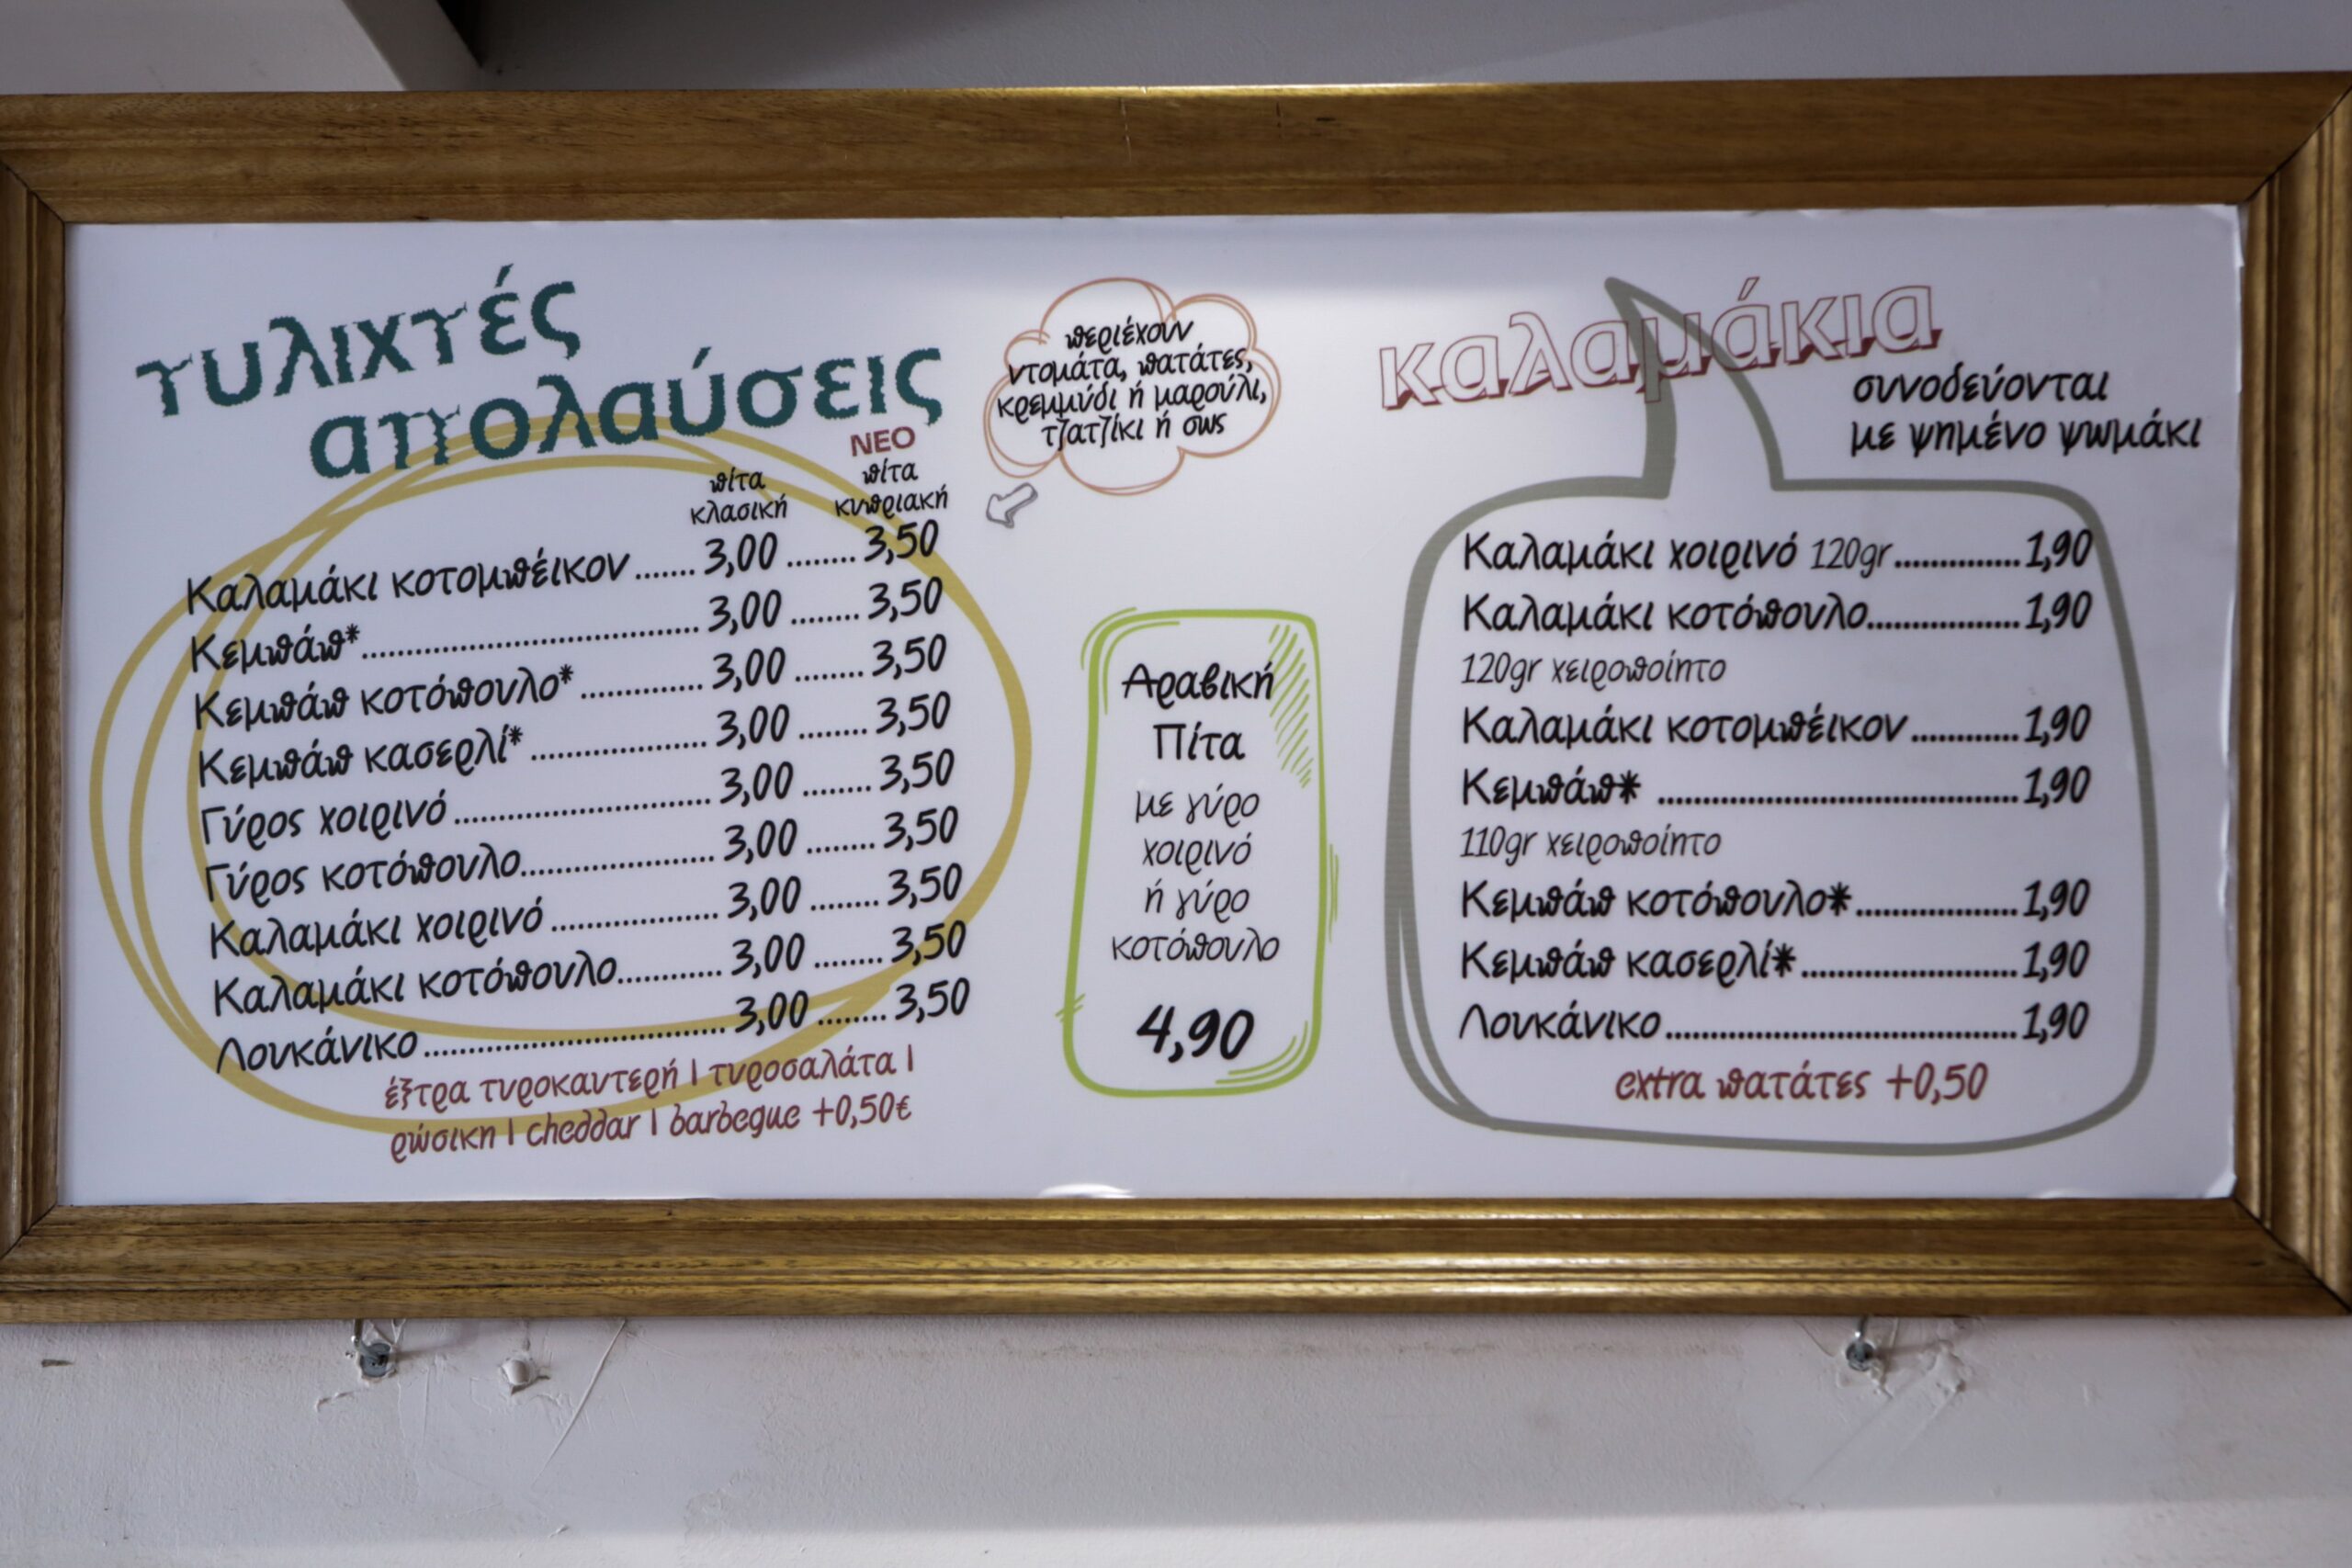 τυλιχτές
απολαύσεις
ΝΕΟ
πίτα κλασική
πίτα κυπριακή
Καλαμάκι κοτομπέικον ....... 3,00 ........ 3,50
Κεμπάπ* ....... 3,00 ........ 3,50
Κεμπάπ κοτόπουλο* ....... 3,00 ........ 3,50
Κεμπάπ κασερλί* ....... 3,00 ........ 3,50
Γύρος χοιρινό ....... 3,00 ........ 3,50
Γύρος κοτόπουλο ....... 3,00 ........ 3,50
Καλαμάκι χοιρινό ....... 3,00 ........ 3,50
Καλαμάκι κοτόπουλο ....... 3,00 ........ 3,50
Λουκάνικο ....... 3,00 ........ 3,50
έξτρα τυροκαυτερή | τυροσαλάτα |
ρώσικη | cheddar | barbegue +0,50€
περιέχουν
ντομάτα, πατάτες,
κρεμμύδι ή μαρούλι,
τζατζίκι ή σως
Αραβική
Πίτα
με γύρο
χοιρινό
ή γύρο
κοτόπουλο
4,90
καλαμάκια
συνοδεύονται
με ψημένο ψωμάκι
Καλαμάκι χοιρινό 120gr ....... 1,90
Καλαμάκι κοτόπουλο ....... 1,90
120gr χειροποίητο
Καλαμάκι κοτομπέικον ....... 1,90
Κεμπάπ* ....... 1,90
110gr χειροποίητο
Κεμπάπ κοτόπουλο* ....... 1,90
Κεμπάπ κασερλί* ....... 1,90
Λουκάνικο ....... 1,90
extra πατάτες +0,50